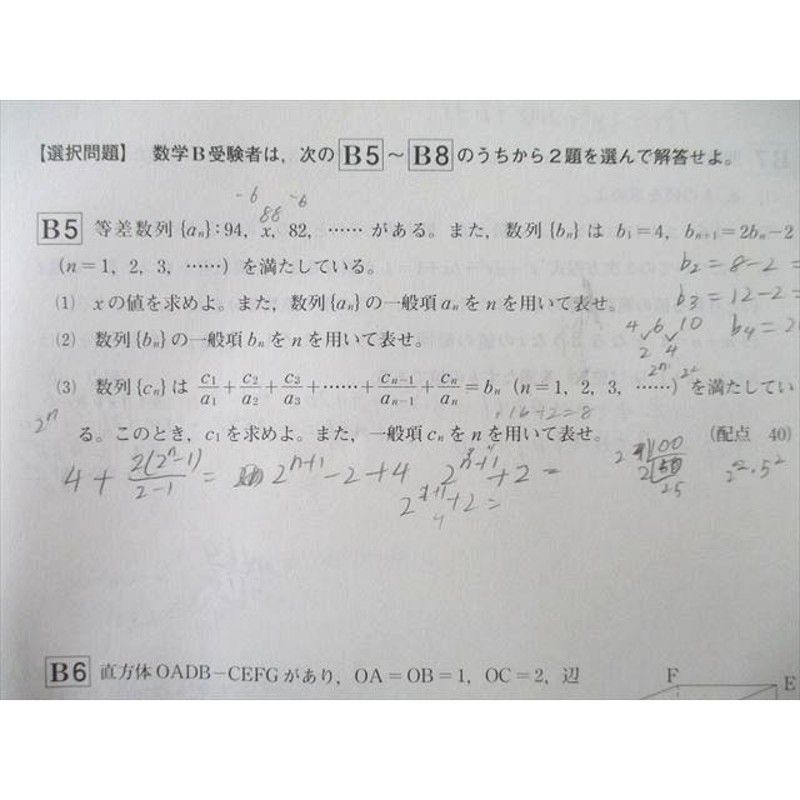 【選択問題】 数学B受験者は，次の B5 ～ B8 のうちから2題を選んで解答せよ。
-6 -6
88
B5 等差数列 {aₙ}：94，x，82，…… がある。また，数列 {bₙ} は b₁=4，bₙ₊₁=2bₙ−2
(n=1，2，3，……) を満たしている。
b₂=8-2=
(1) xの値を求めよ。また，数列{aₙ}の一般項aₙをnを用いて表せ。
b₃=12-2=
4 6 10
b₄=2
(2) 数列{bₙ}の一般項bₙをnを用いて表せ。
2 4
(3) 数列{cₙ}は c₁/a₁+c₂/a₂+c₃/a₃+……+cₙ₋₁/aₙ₋₁+cₙ/aₙ=bₙ (n=1，2，3，……) を満たしてい
2ⁿ 2²
2ⁿ
る。このとき，c₁を求めよ。また，一般項cₙをnを用いて表せ。 (配点 40)
4+2(2ⁿ-1)/2-1= 2ⁿ⁺¹-2+4 2ⁿ⁺¹+2=
+2=
4
2 100
2 50
25
2²・5²
B6 直方体OADB−CEFGがあり，OA=OB=1，OC=2，辺
F
E